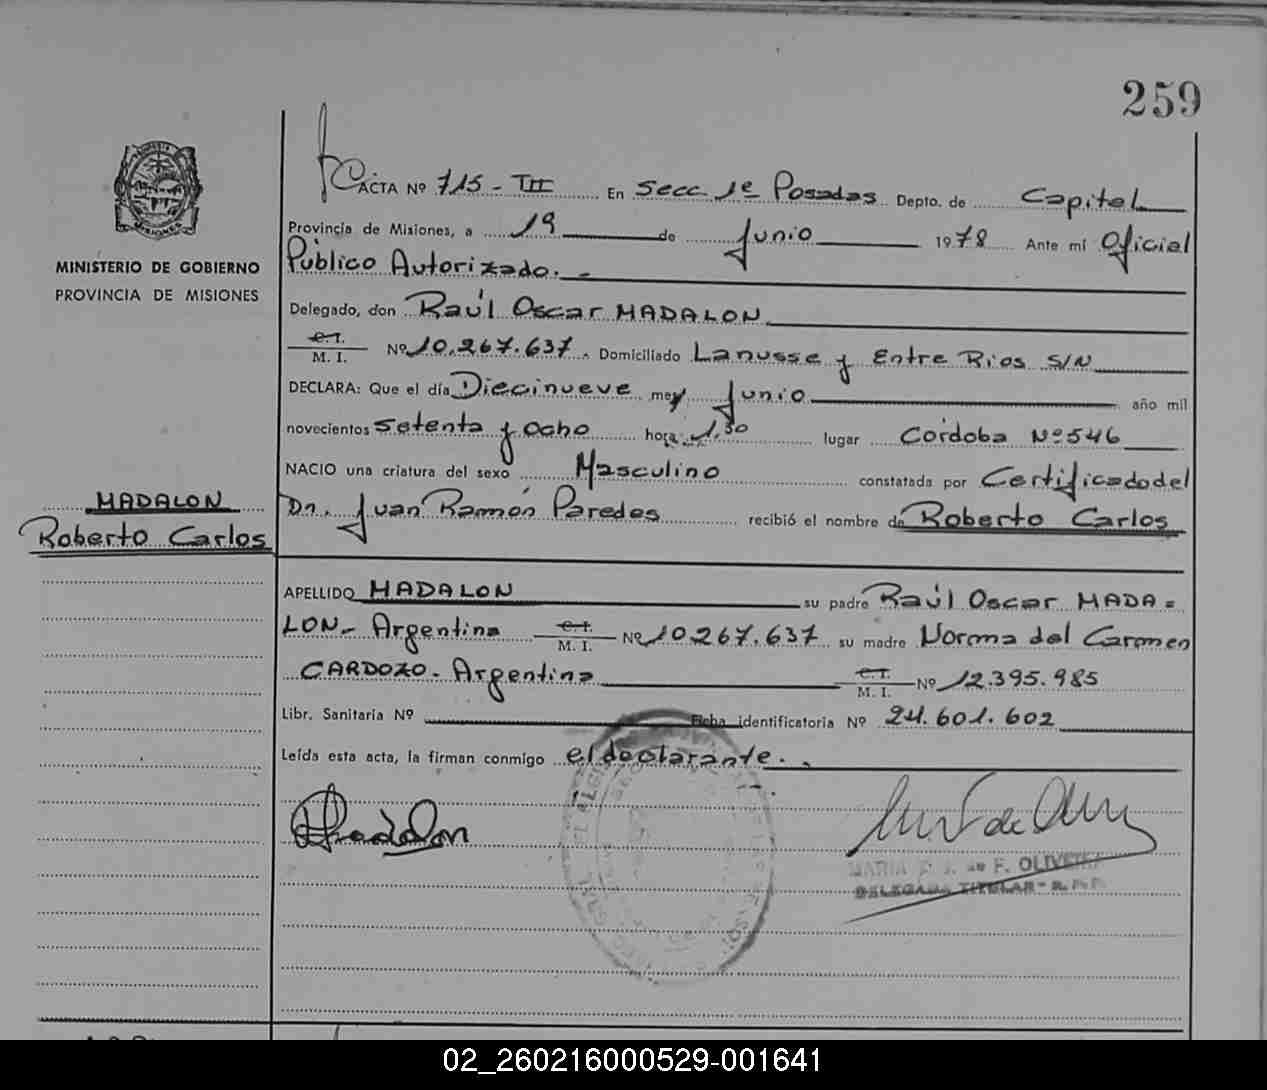 259
ACTA Nº 715 - III En Secc 1º Posadas Depto. de Capital
Provincia de Misiones, a 19 de Junio 1978 Ante mí Oficial
Público Autorizado. -
Delegado, don Raúl Oscar MADALON
C.I.
M. I. Nº 10.267.637. Domiciliado Lanusse y Entre Rios S/N
DECLARA: Que el día Diecinueve mes Junio año mil
novecientos setenta y ocho hora 1.30 lugar Córdoba Nº 546
NACIO una criatura del sexo Masculino constatada por Certificado del
Dr. Juan Ramón Paredes recibió el nombre de Roberto Carlos
APELLIDO MADALON su padre Raúl Oscar MADA=
LON- Argentino C.I. M. I. Nº 10.267.637 su madre Norma del Carmen
CARDOZO- Argentina C.I. M. I. Nº 12.395.985
Libr. Sanitaria Nº Ficha identificatoria Nº 24.601.602
Leída esta acta, la firman conmigo el declarante. -
MARIA F. OLIVEIRA
DELEGADA TITULAR
MISIONES
MINISTERIO DE GOBIERNO
PROVINCIA DE MISIONES
MADALON
Roberto Carlos
02_260216000529-001641